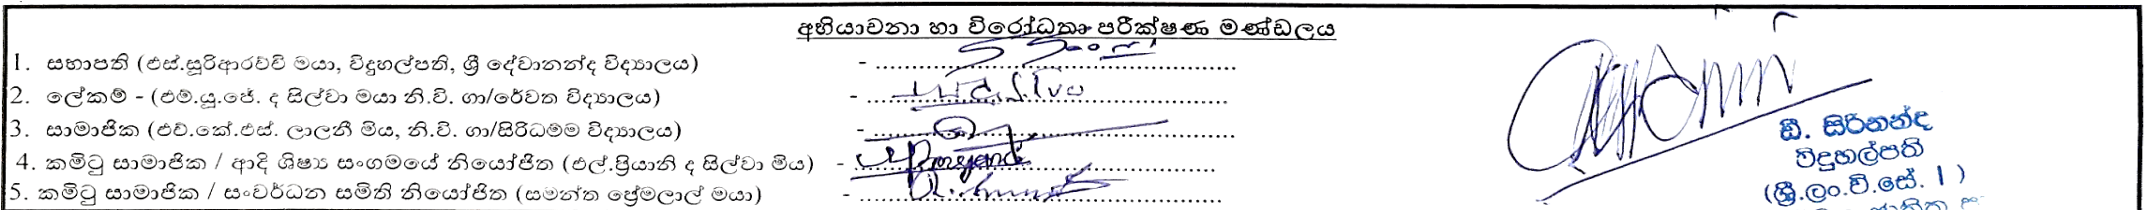 අභියාචනා හා විරෝධතා පරීක්ෂණ මණ්ඩලය
1. සභාපති (එස්.සූරිආරච්චි මයා, විදුහල්පති, ශ්‍රී දේවානන්ද විද්‍යාලය) - ........................................................
2. ලේකම් - (එම්.යූ.ජේ. ද සිල්වා මයා නි.වි. ගා/රේවත විද්‍යාලය) - ........................................................
3. සාමාජික (එච්.කේ.එස්. ලාලනී මිය, නි.වි. ගා/සිරිධම්ම විද්‍යාලය) - ........................................................
4. කමිටු සාමාජික / ආදි ශිෂ්‍ය සංගමයේ නියෝජිත (එල්.ප්‍රියානි ද සිල්වා මිය) - ........................................................
5. කමිටු සාමාජික / සංවර්ධන සමිති නියෝජිත (සමන්ත ප්‍රේමලාල් මයා) - ........................................................
ඩී. සිරිනන්ද
විදුහල්පති
(ශ්‍රී.ලං.වි.සේ. I )